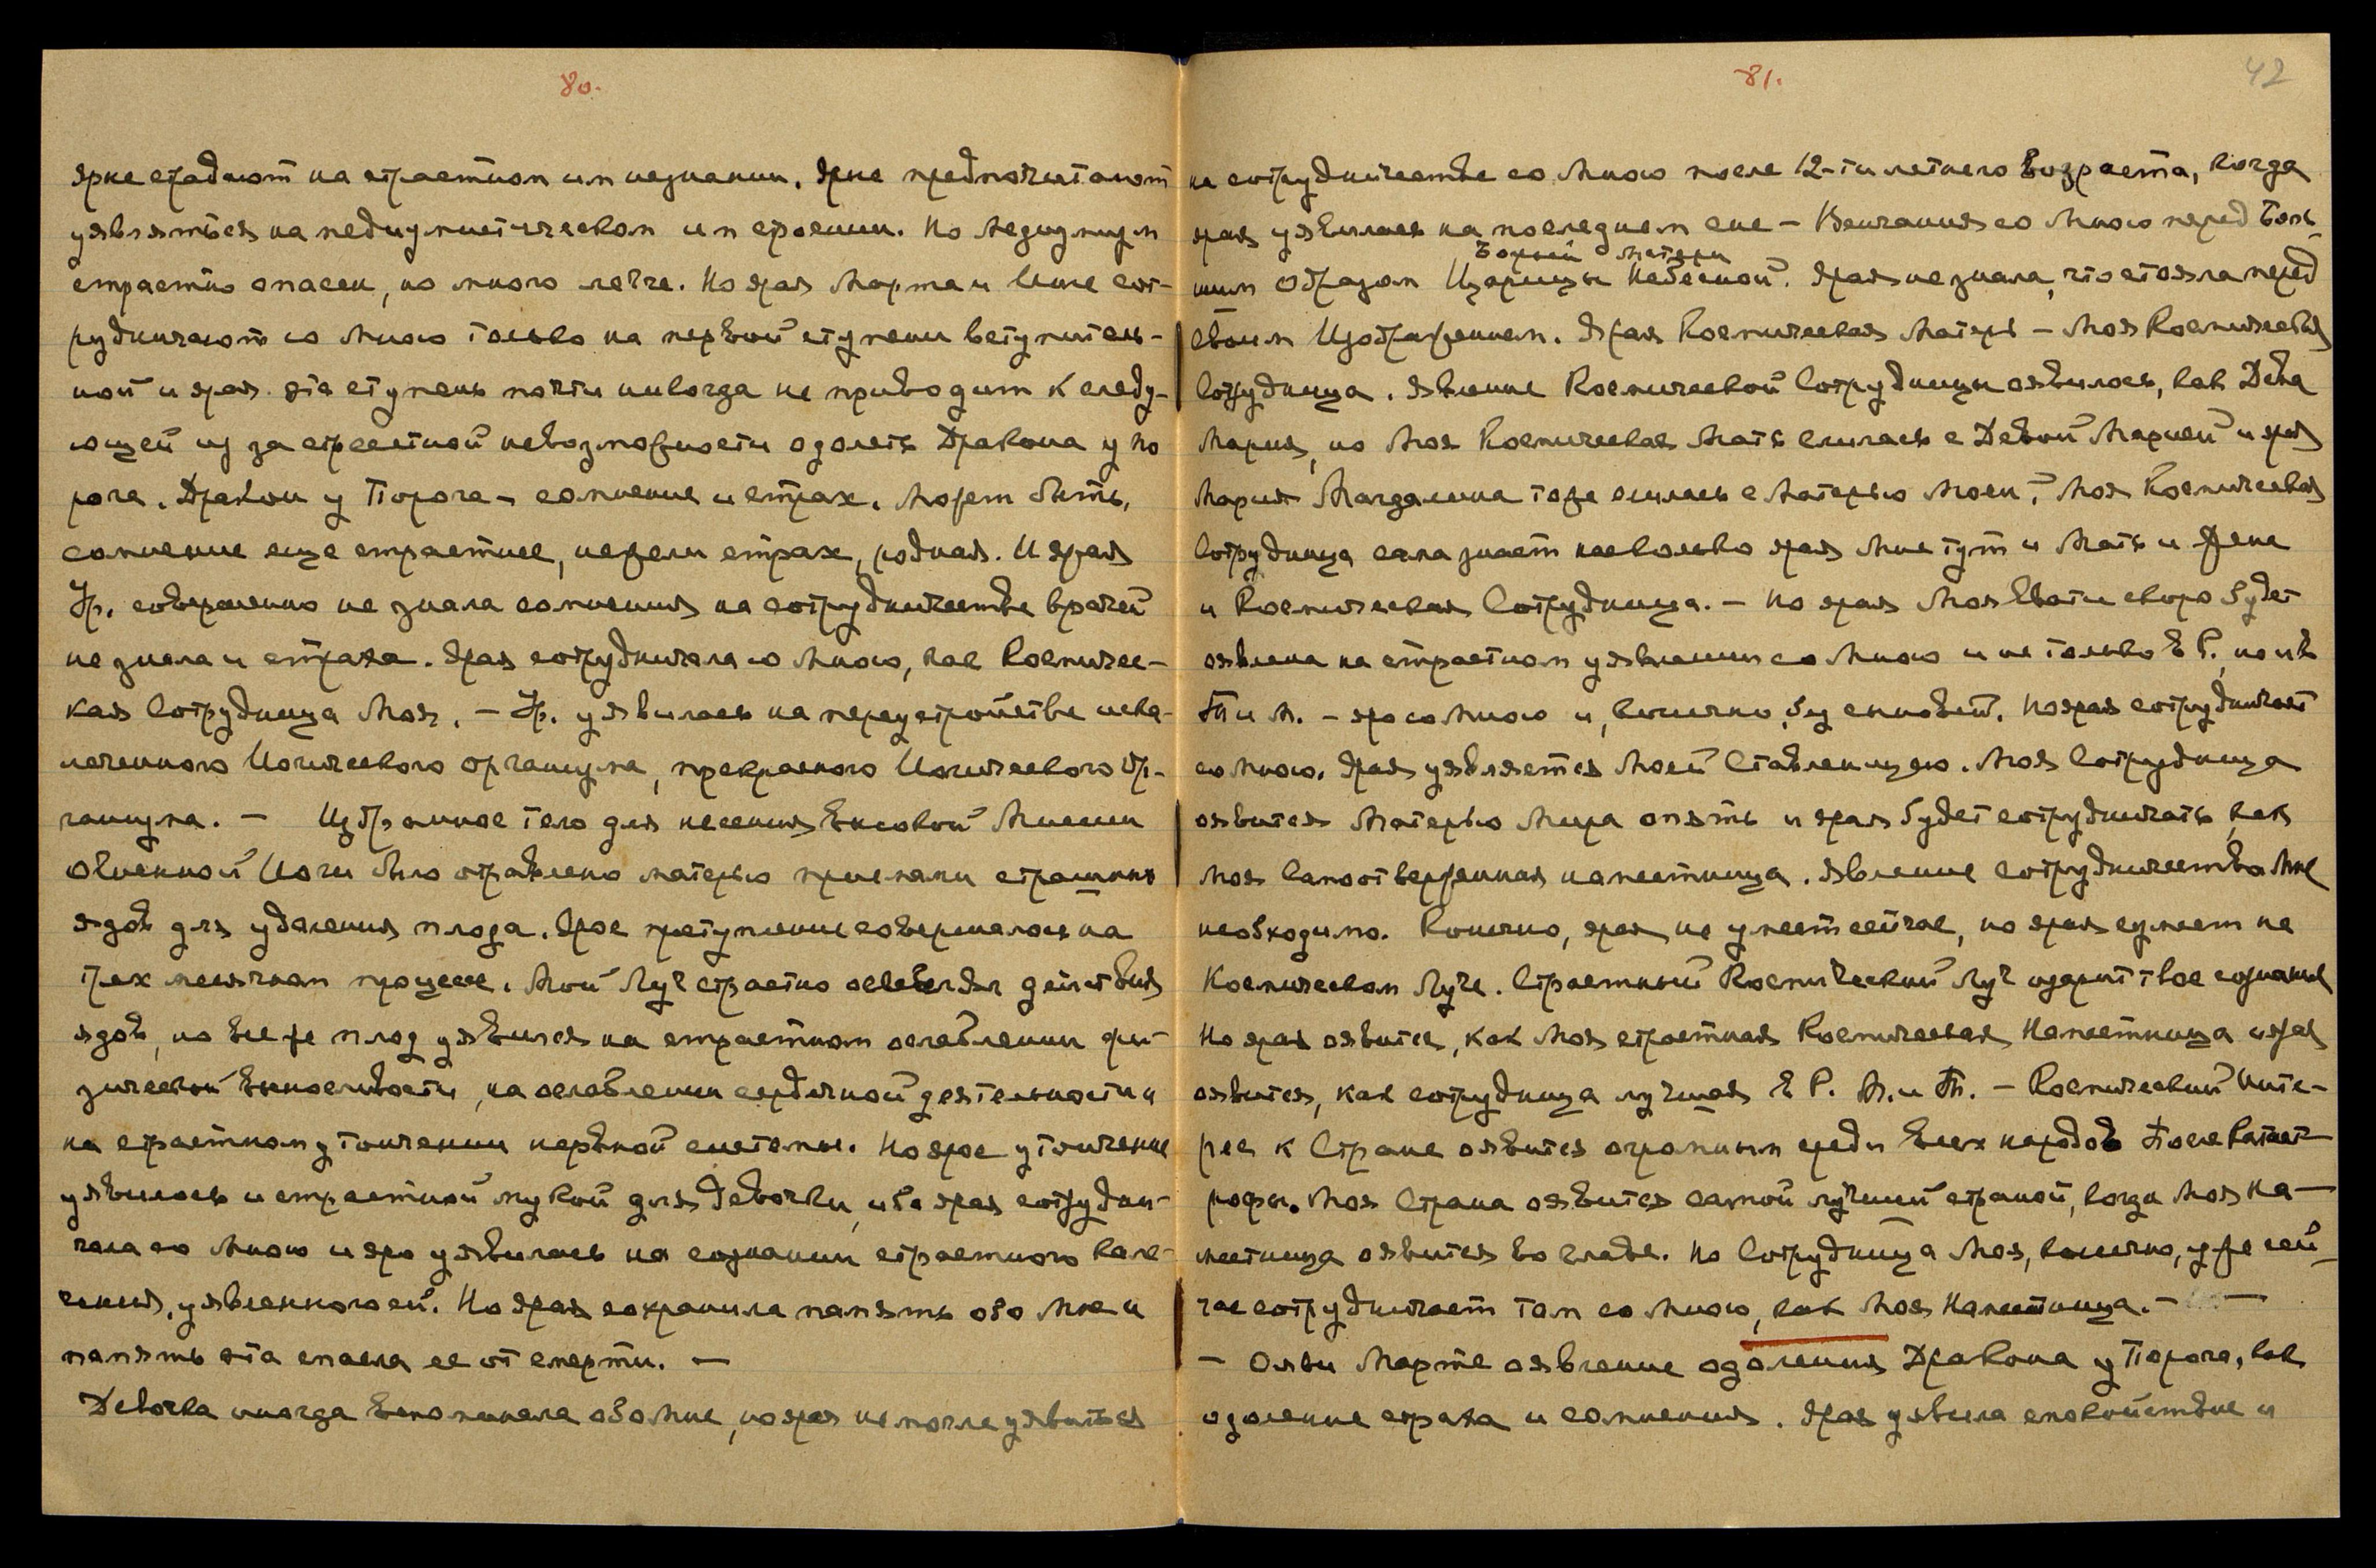 80.
Ярые страдают на страстном им незнании. Ярые предпочитают
уявляться на медиумистическом им строении. Но медиумизм
страстно опасен, но много легче. Но ярая Марта и Инге сот-
рудничают со Мною только на первой ступени вступитель-
ной и ярая эта ступень почти никогда не приводит к следу-
ющей из за страстной невозможности одолеть Дракона у По
рога. Дракон у Порога – сомнение и страх. Может быть,
сомнение еще страстнее, нежели страх, родная. И ярая
Ур. совершенно не знала сомнения на сотрудничестве врачей
не знала и страха. Ярая сотрудничала со Мною, как Космичес-
кая Сотрудница Моя. – Ур. уявилась на переустройстве иска-
леченного Йогического организма, прекрасного Йогического Ор-
ганизма. – Избранное тело для несения Высокой Миссии
Огненной Йоги было отравлено матерью приемами страшных
ядов для удаления плода. Ярое преступление совершалось на
трех месячном процессе. Мой Луч страстно ослаблял действия
ядов, но все же плод уявился на страстном ослаблении фи-
зической выносливости, на ослаблении сердечной деятельности и
на страстном утончении нервной системы. Но ярое утончение
уявилось и страстной мукой для Девочки, ибо ярая сотрудни-
чала со Мною и яро уявилась на сознании страстного кале-
чения, уявленного ей. Но ярая сохранила память обо Мне и
память эта спасла ее от смерти. –
Девочка иногда вспоминала обо Мне, но ярая не могла уявиться
81.
42
на сотрудничестве со Мною после 12-ти летнего возраста, когда
ярая уявилась на последнем сне – Венчания со Мною перед Боль-
Божьей Матери
шим Образом Царицы Небесной. Ярая не знала, что стояла перед
своим Изображением. Ярая Космическая Матерь – Моя Космическая
Сотрудница. Явление Космической Сотрудницы оявилось, как Дева
Мария, но Моя Космическая Мать слилась с Девой Марией и ярая
Мария Магдалина тоже слилась с Матерью Моей. Моя Космическая
Сотрудница сама знает насколько ярая Мне тут и Мать и Жена
и Космическая Сотрудница. – Но ярая Моя Свати скоро будет
оявлена на страстном уявлении со Мною и не только в Р., но и в
Т. и М. – яро со Мною и, конечно, без сыновей. Но ярая сотрудничает
со Мною. Ярая уявляется Моей Ставленницею. Моя Сотрудница
оявится Матерью Мира опять и ярая будет сотрудничать, как
Моя самоотверженная наместница. Явление сотрудничества Мне
необходимо. Конечно, ярая не умеет сейчас, но ярая сумеет на
Космическом Луче. Страстный Космический Луч озарит твое сознание
Но ярая оявится, как Моя страстная Космическая Наместница и ярая
оявится, как сотрудница лучшая в Р. М. и Т. – Космический Инте-
рес к Стране оявится огромным среди всех народов После Катаст-
рофы. Моя Страна оявится самой лучшей страной, когда Моя На-
местница оявится во главе. Но Сотрудница Моя, конечно, уже сей-
час сотрудничает там со Мною, как Моя Наместница. –
– Ояви Марте оявление одоления Дракона у Порога, как
одоление страха и сомнения. Ярая уявила спокойствие и